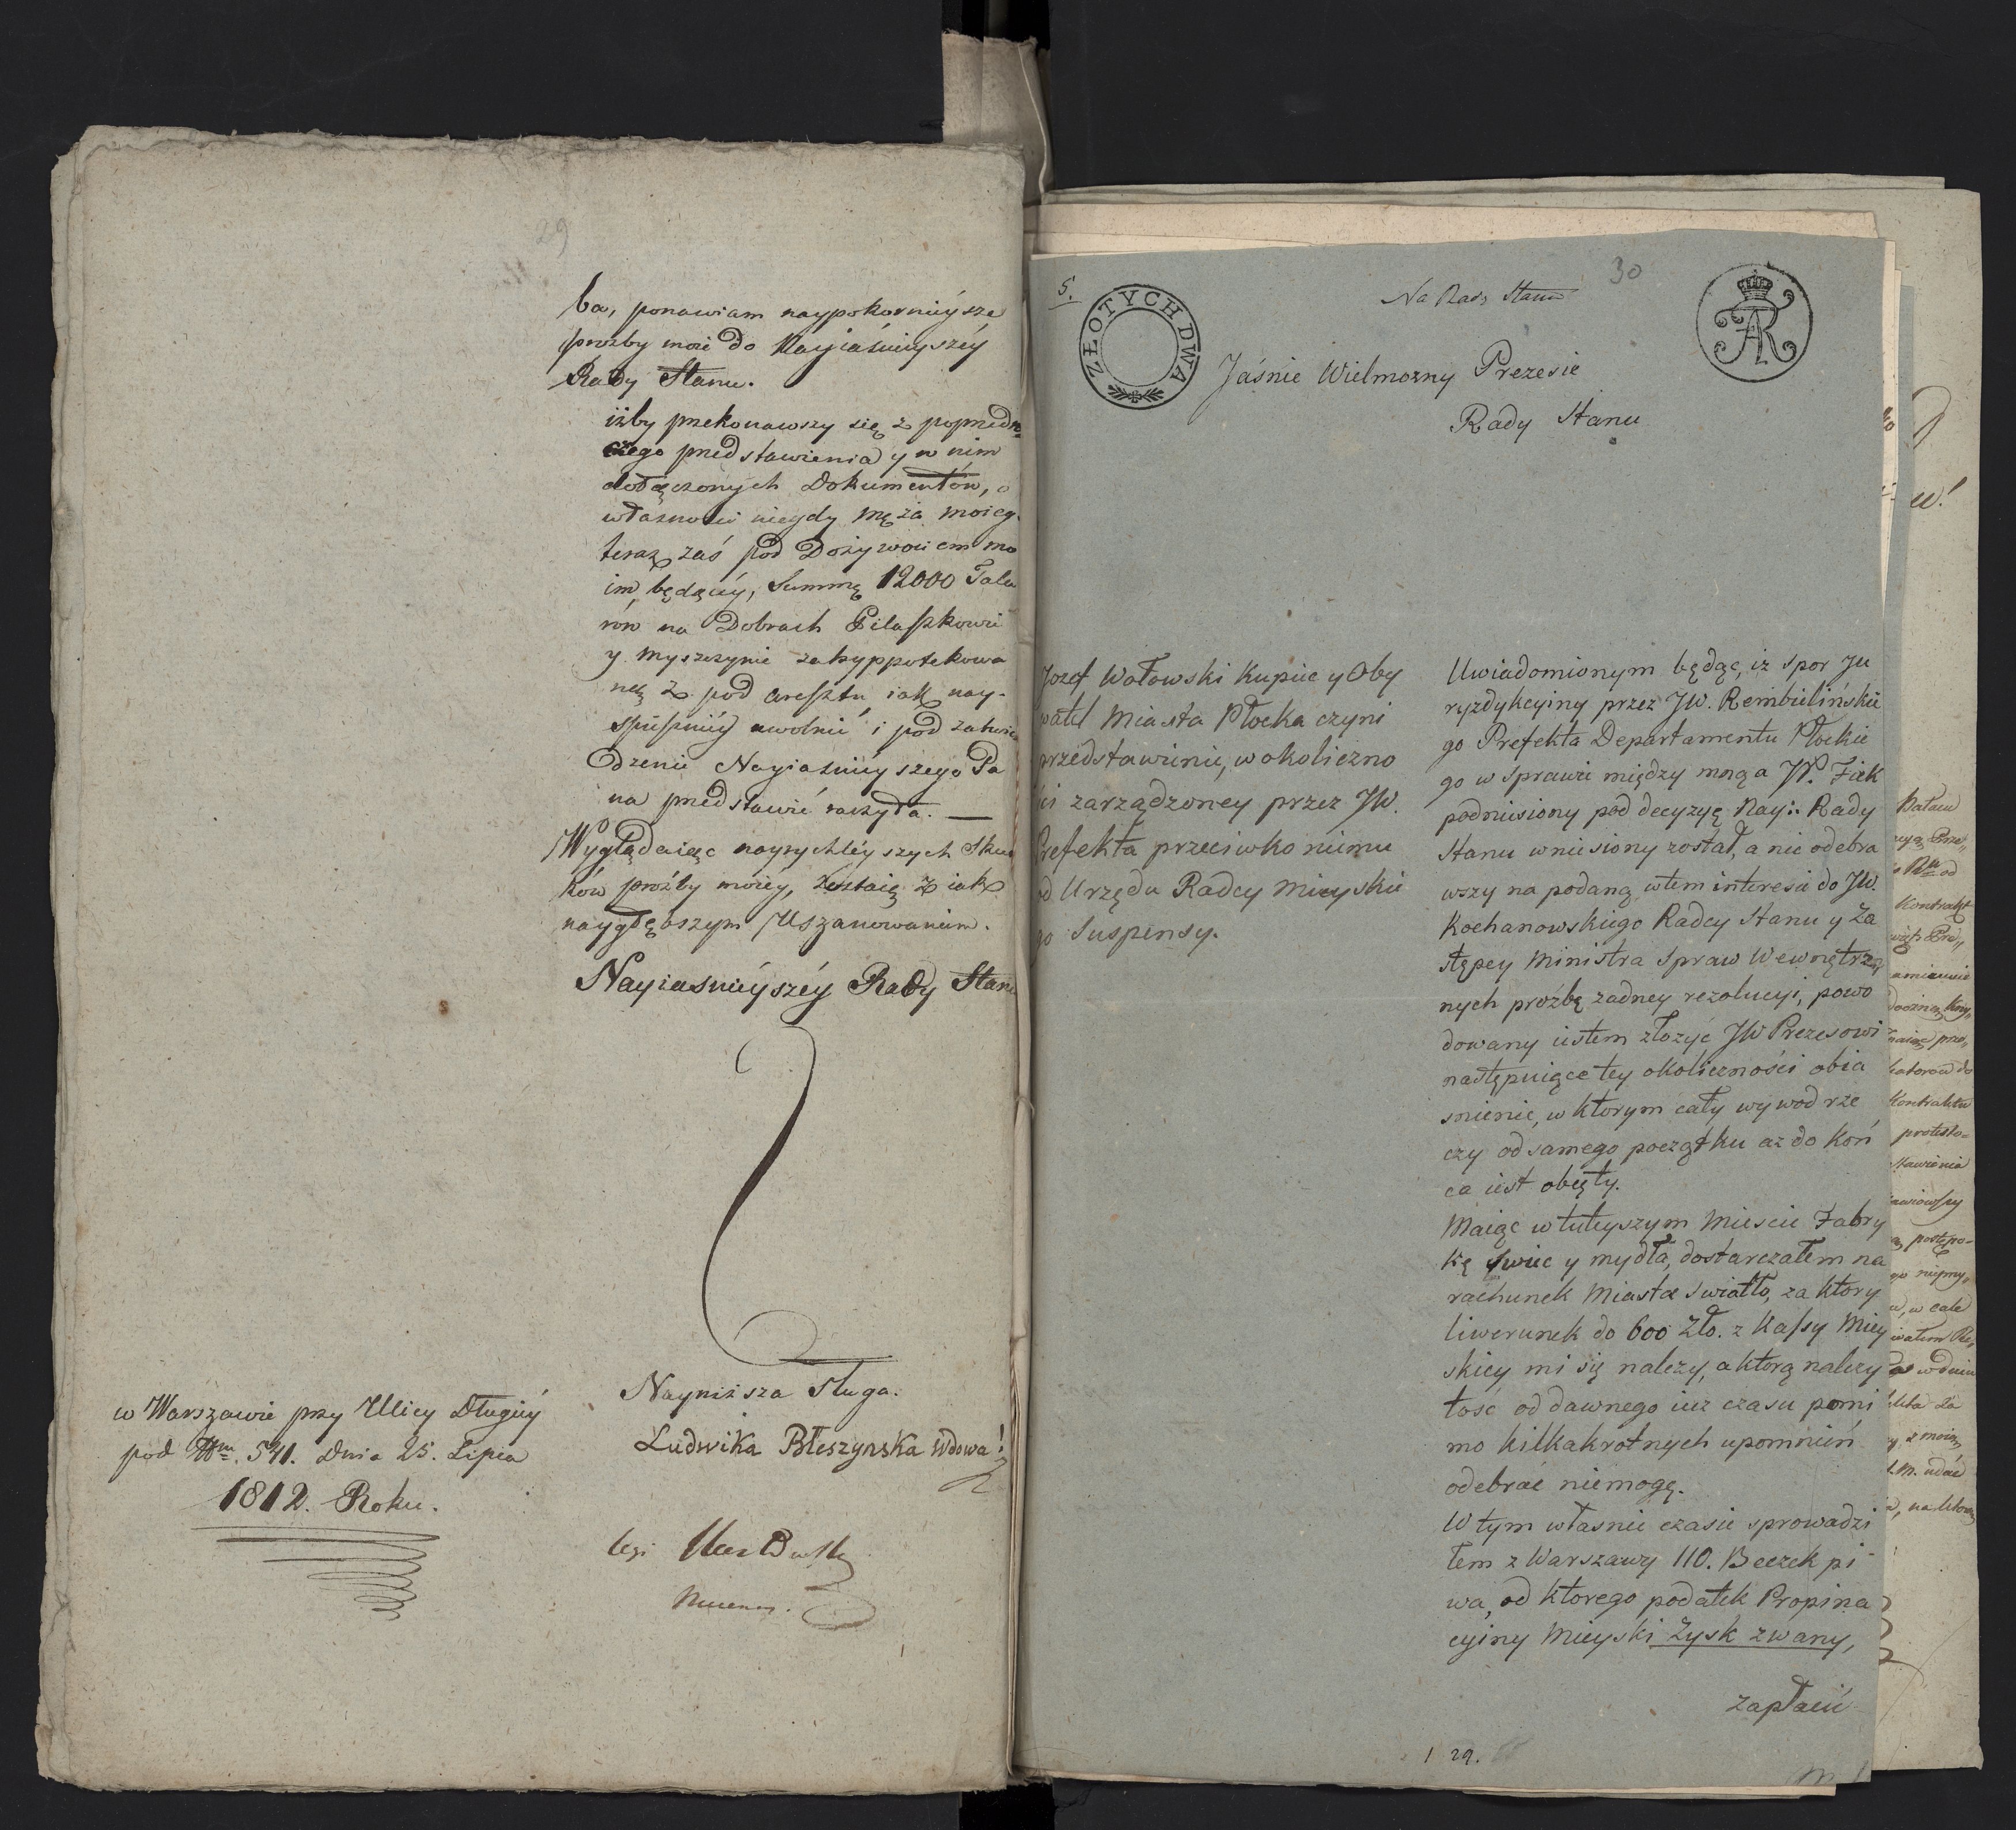 29
ba, ponawiam naypokornieysze
proźby moie do Nayiaśnieyszéy
Rady Stanu.
iżby przekonawszy się z poprzedn
czego przedstawienia y w nim
dołączonych Dokumentów, o
własności niegdy Męża moieg
teraz zaś pod Dożywociem mo
im będącéy, Summę 12000 Tala
rów na Dobrach Gilaszkowie
y Myszczynie zahyppotekowa
ną z pod aresztu, iak nay-
spieszniéy uwolnić i pod zatwier
dzenie Nayiaśnieyszego Pa
na przedstawić raczyła. —
Wyglądaiąc nayrychléyszych Sku
ków proźby moiéy, zostaię z iak
naygłębszym Uszanowaniem.
Nayiaśnieyszéy Rady Stanu
Nayniższa Sługa.
Ludwika Błeszynska Wdowa!
w Warszawie przy Ulicy Długiéy
pod Nrm. 541. Dnia 25. Lipca
1812. Roku.
5.
30
Na Radę Stanu
ZŁOTYCH DWA
Jaśnie Wielmozny Prezesie
Rady Stanu
Jozef Wołowski Kupiec y Oby
watel Miasta Płocka czyni
przedstawienie, w okoliczno
ści zarządzoney przez JW.
Prefekta przeciwko niemu
od Urzędu Radcy Mieyskie
go Suspensy.
Uwiadomionym będąc, iz spor Ju
ryzdykcyiny przez JW. Rembielińskie
go Prefekta Departamentu Płockie
go w sprawie między mną a JP. Fiek
podniesiony pod decyzyę Nay: Rady
Stanu wniesiony został, a nie odebra
wszy na podaną w tem interesie do JW.
Kochanowskiego Radcy Stanu y Za
stępcy Ministra Spraw Wewnętrz
nych proźbę zadney rezolucyi, powo
dowany iestem złozyć JW Prezesowi
następuiące tey okoliczności obia
snienie, w ktorym cały wywod rze
czy od samego początku az do Koń
ca iest obięty.
Maiąc w tuteyszym Miescie Fabry
kę swiec y mydła, dostarczałem na
rachunek Miasta Swiatło, za ktory
liwerunek do 600 Zło. z Kassy Miey
skiey mi się nalezy, a ktorą nalezy
tość od dawnego iuz czasu pomi
mo kilkakrotnych upomnień
odebrać niemogę.
W tym własnie czasie sprowadzi
łem z Warszawy 110. Beczek pi
wa, od ktorego podatek Propina
cyiny Mieyski Zysk zwany,
zapłacić
29.